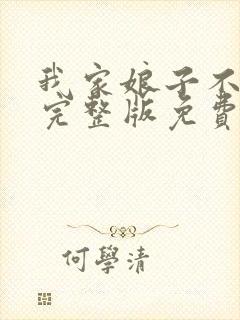 我家娘子不
完整版免費
何學清